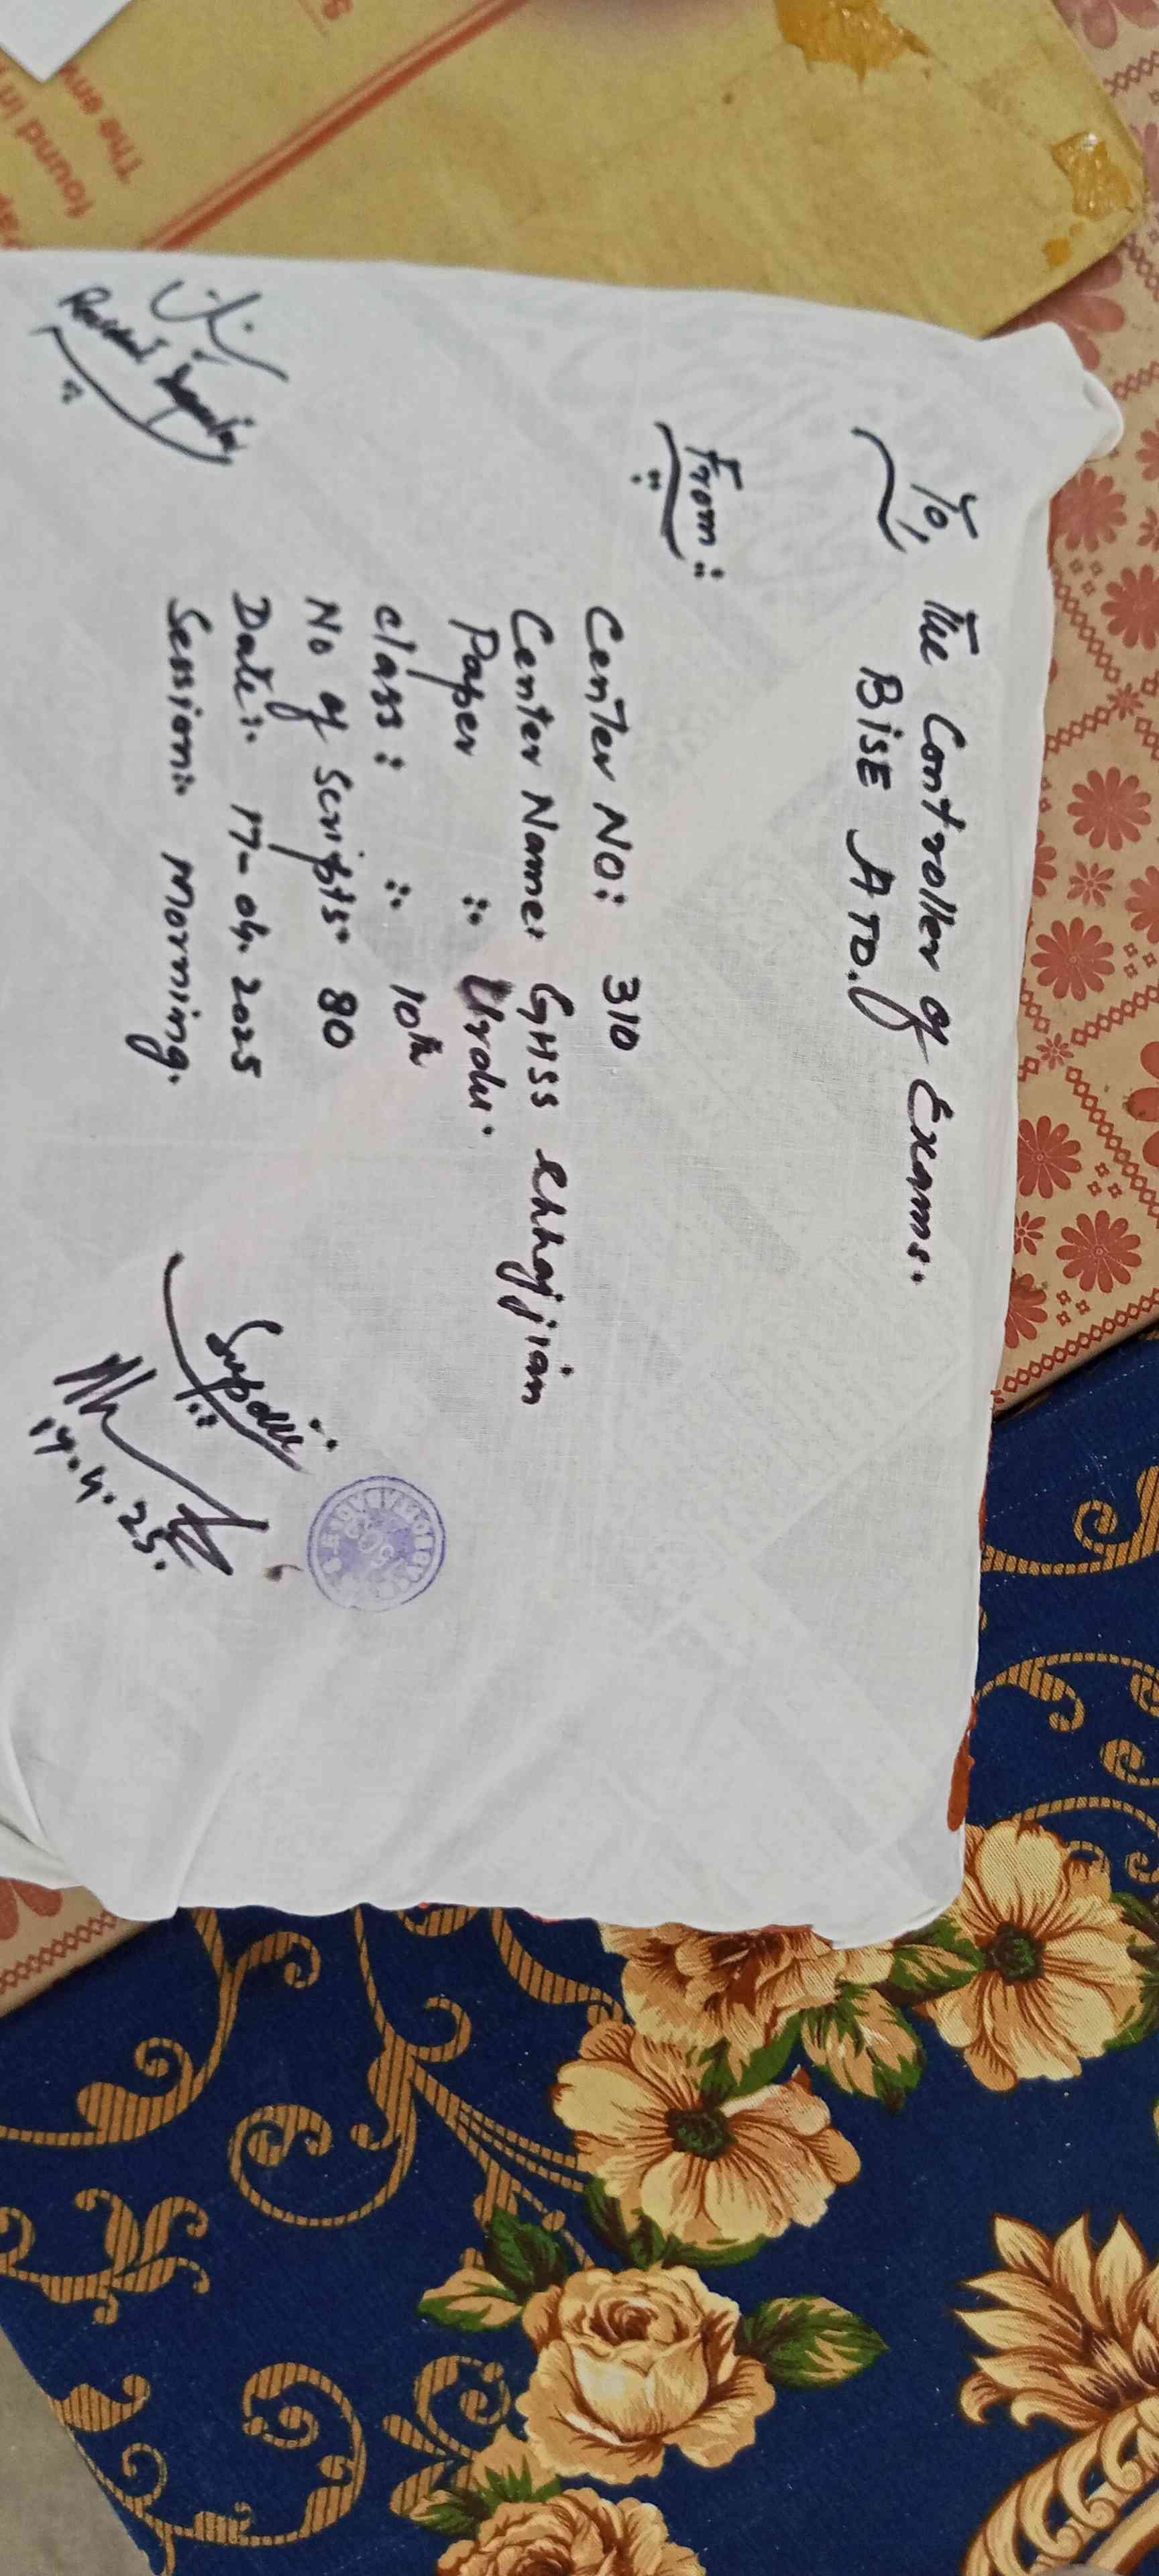 To,
The Controller of Exams.
BISE ATD.
From:
Center No: 310
Center Name: GHSS Chhajjian
Paper : Urdu.
Class : : 10th
No of Scripts. 80
Date:. 17-04.2025
Session:. Morning.
Supdtt:
17.4.25.
The env
found in